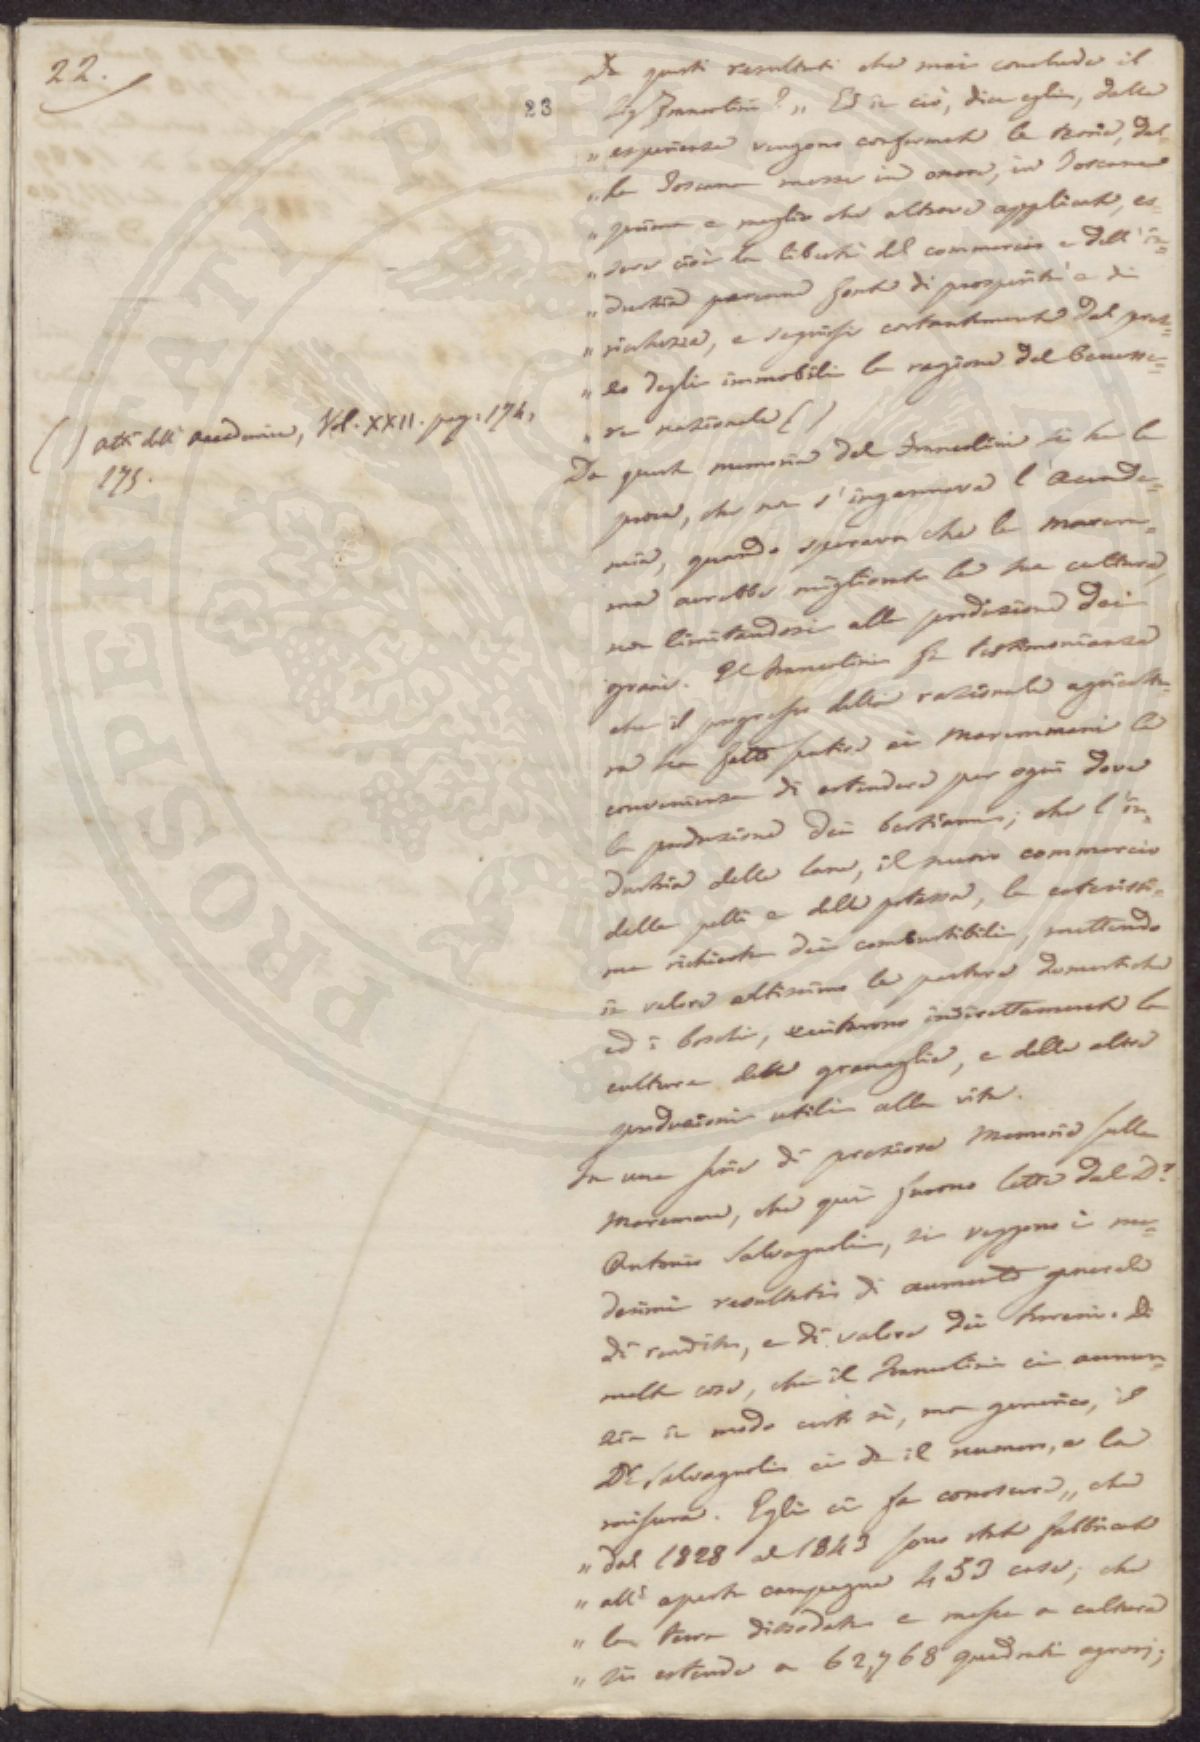 22.
23
Da questi resultati che mai conclude il
Sig. Francolini? „ Ed in ciò, dice egli, dalla
„ esperienza vengono confermate le teorie, dal-
„ la Toscana messe in onore, in Toscana
„ prima e meglio che altrove applicate, es-
„ sere cioè la libertà del commercio e dell'in-
„ dustria perenne fonte di prosperità e di
„ ricchezza, e seguirsi costantemente dal prez-
„ zo degli immobili la ragione del benesse-
„ re nazionale ( )
( ) Atti dell'Accademia, Vol. XXII. pag: 174,
175.
Da questa memoria del Francolini si ha la
prova, che non s'ingannava l'Accade-
mia, quando sperava che la Marem-
ma avrebbe migliorato la sua cultura,
non limitandosi alla produzione dei
grani. Il Francolini fa testimonianza
che il progresso della razionale agricoltu-
ra ha fatto sentire ai Maremmani la
convenienza di estendere per ogni dove
la produzione dei bestiami; che l'in-
dustria delle lane, il nuovo commercio
delle pelli e della potassa, le estesissi-
me richieste dei combustibili, mettendo
in valore altissimo le pasture domestiche
ed i boschi, eccitarono indirettamente la
cultura delle granaglie, e delle altre
produzioni utili alla vita.
In una serie di preziose Memorie sulla
Maremma, che quì furono lette dal D.r
Antonio Salvagnoli, si veggono i me-
desimi resultati di aumento generale
di rendita, e di valore dei terreni. Di
molte cose, che il Francolini ci annun-
zia in modo certo sì, ma generico, il
Dr. Salvagnoli ci dà il numero, e la
misura. Egli ci fa conoscere „ che
„ dal 1828 al 1843 sono state fabbricate
„ all'aperta campagna 453 case; che
„ la terra dissodata e messa a cultura
„ si estende a 62,768 quadrati agrarj;